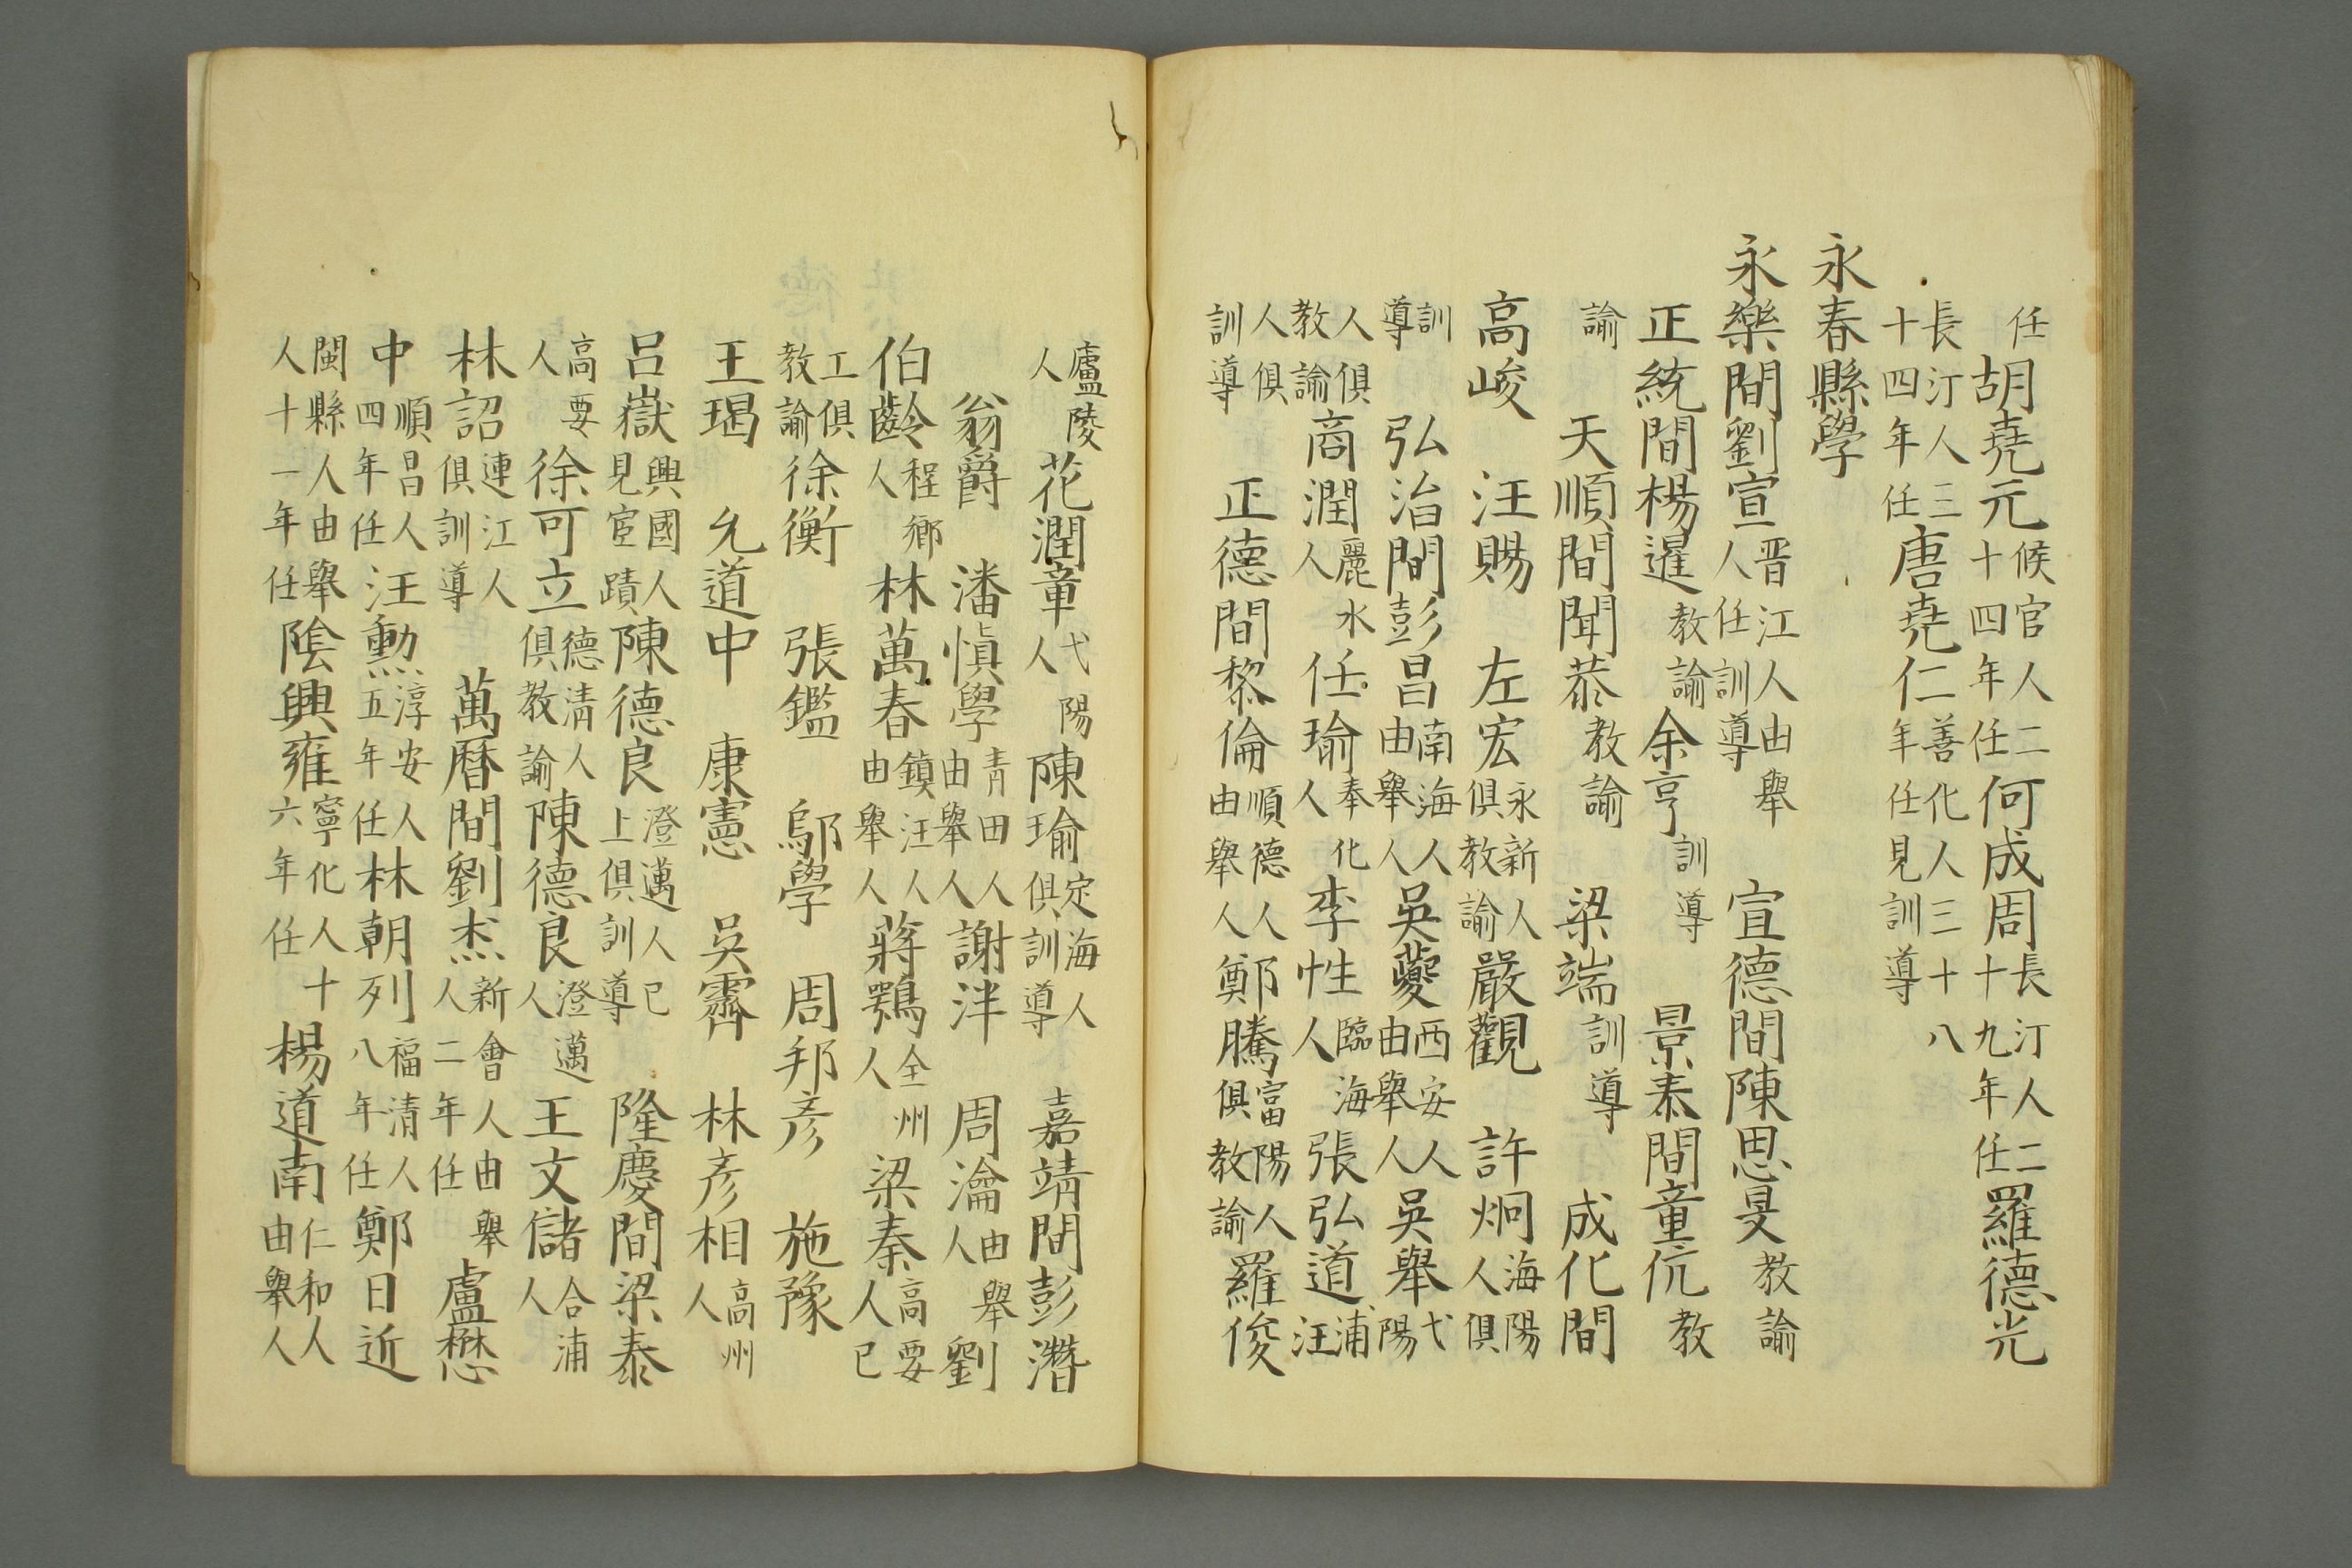 任胡堯元候官人二十四年任何成周長汀人二十九年任羅德光
長汀人三十四年任唐堯仁善化人三十八年任見訓導
永春縣學
永樂間劉宣晋江人由舉人任訓導宣德間陳思旻教諭
正統間楊暹教諭余亨訓導景泰間童伉教
諭天順間聞恭教諭梁端訓導成化間
高峻汪賜左宏永新人俱教諭嚴觀許炯海陽人俱
訓導弘治間彭昌南海人由舉人吳夔西安人由舉人吳舉弋陽
人俱教諭商潤麗水人任瑜奉化人李性臨海人張弘道浦汪
人俱訓導正德間黎倫順德人由舉人鄭騰富陽人俱教諭羅俊
廬陵人花潤章弋陽人陳瑜定海人俱訓導嘉靖間彭濳
翁爵潘慎學青田人由舉人謝泮周瀹由舉人劉
伯齡程鄉人林萬春鎮汪人由舉人蔣鶚全州人梁秦高要人已
工俱教諭徐衡張鑑鄔學周邦彥施豫
王瑒允道中康憲吳霽林彥相高州人
呂嶽興國人見宦蹟陳德良澄邁人已上俱訓導隆慶間梁泰
高要人徐可立德清人俱教諭陳德良澄邁人王文儲合浦人
林詔連江人俱訓導萬曆間劉杰新會人由舉人二年任盧懋
中順昌人四年任汪勲淳安人五年任林朝列福清人八年任鄭日近
閩縣人由舉人十一年任陰興雍寧化人十六年任楊道南仁和人由舉人